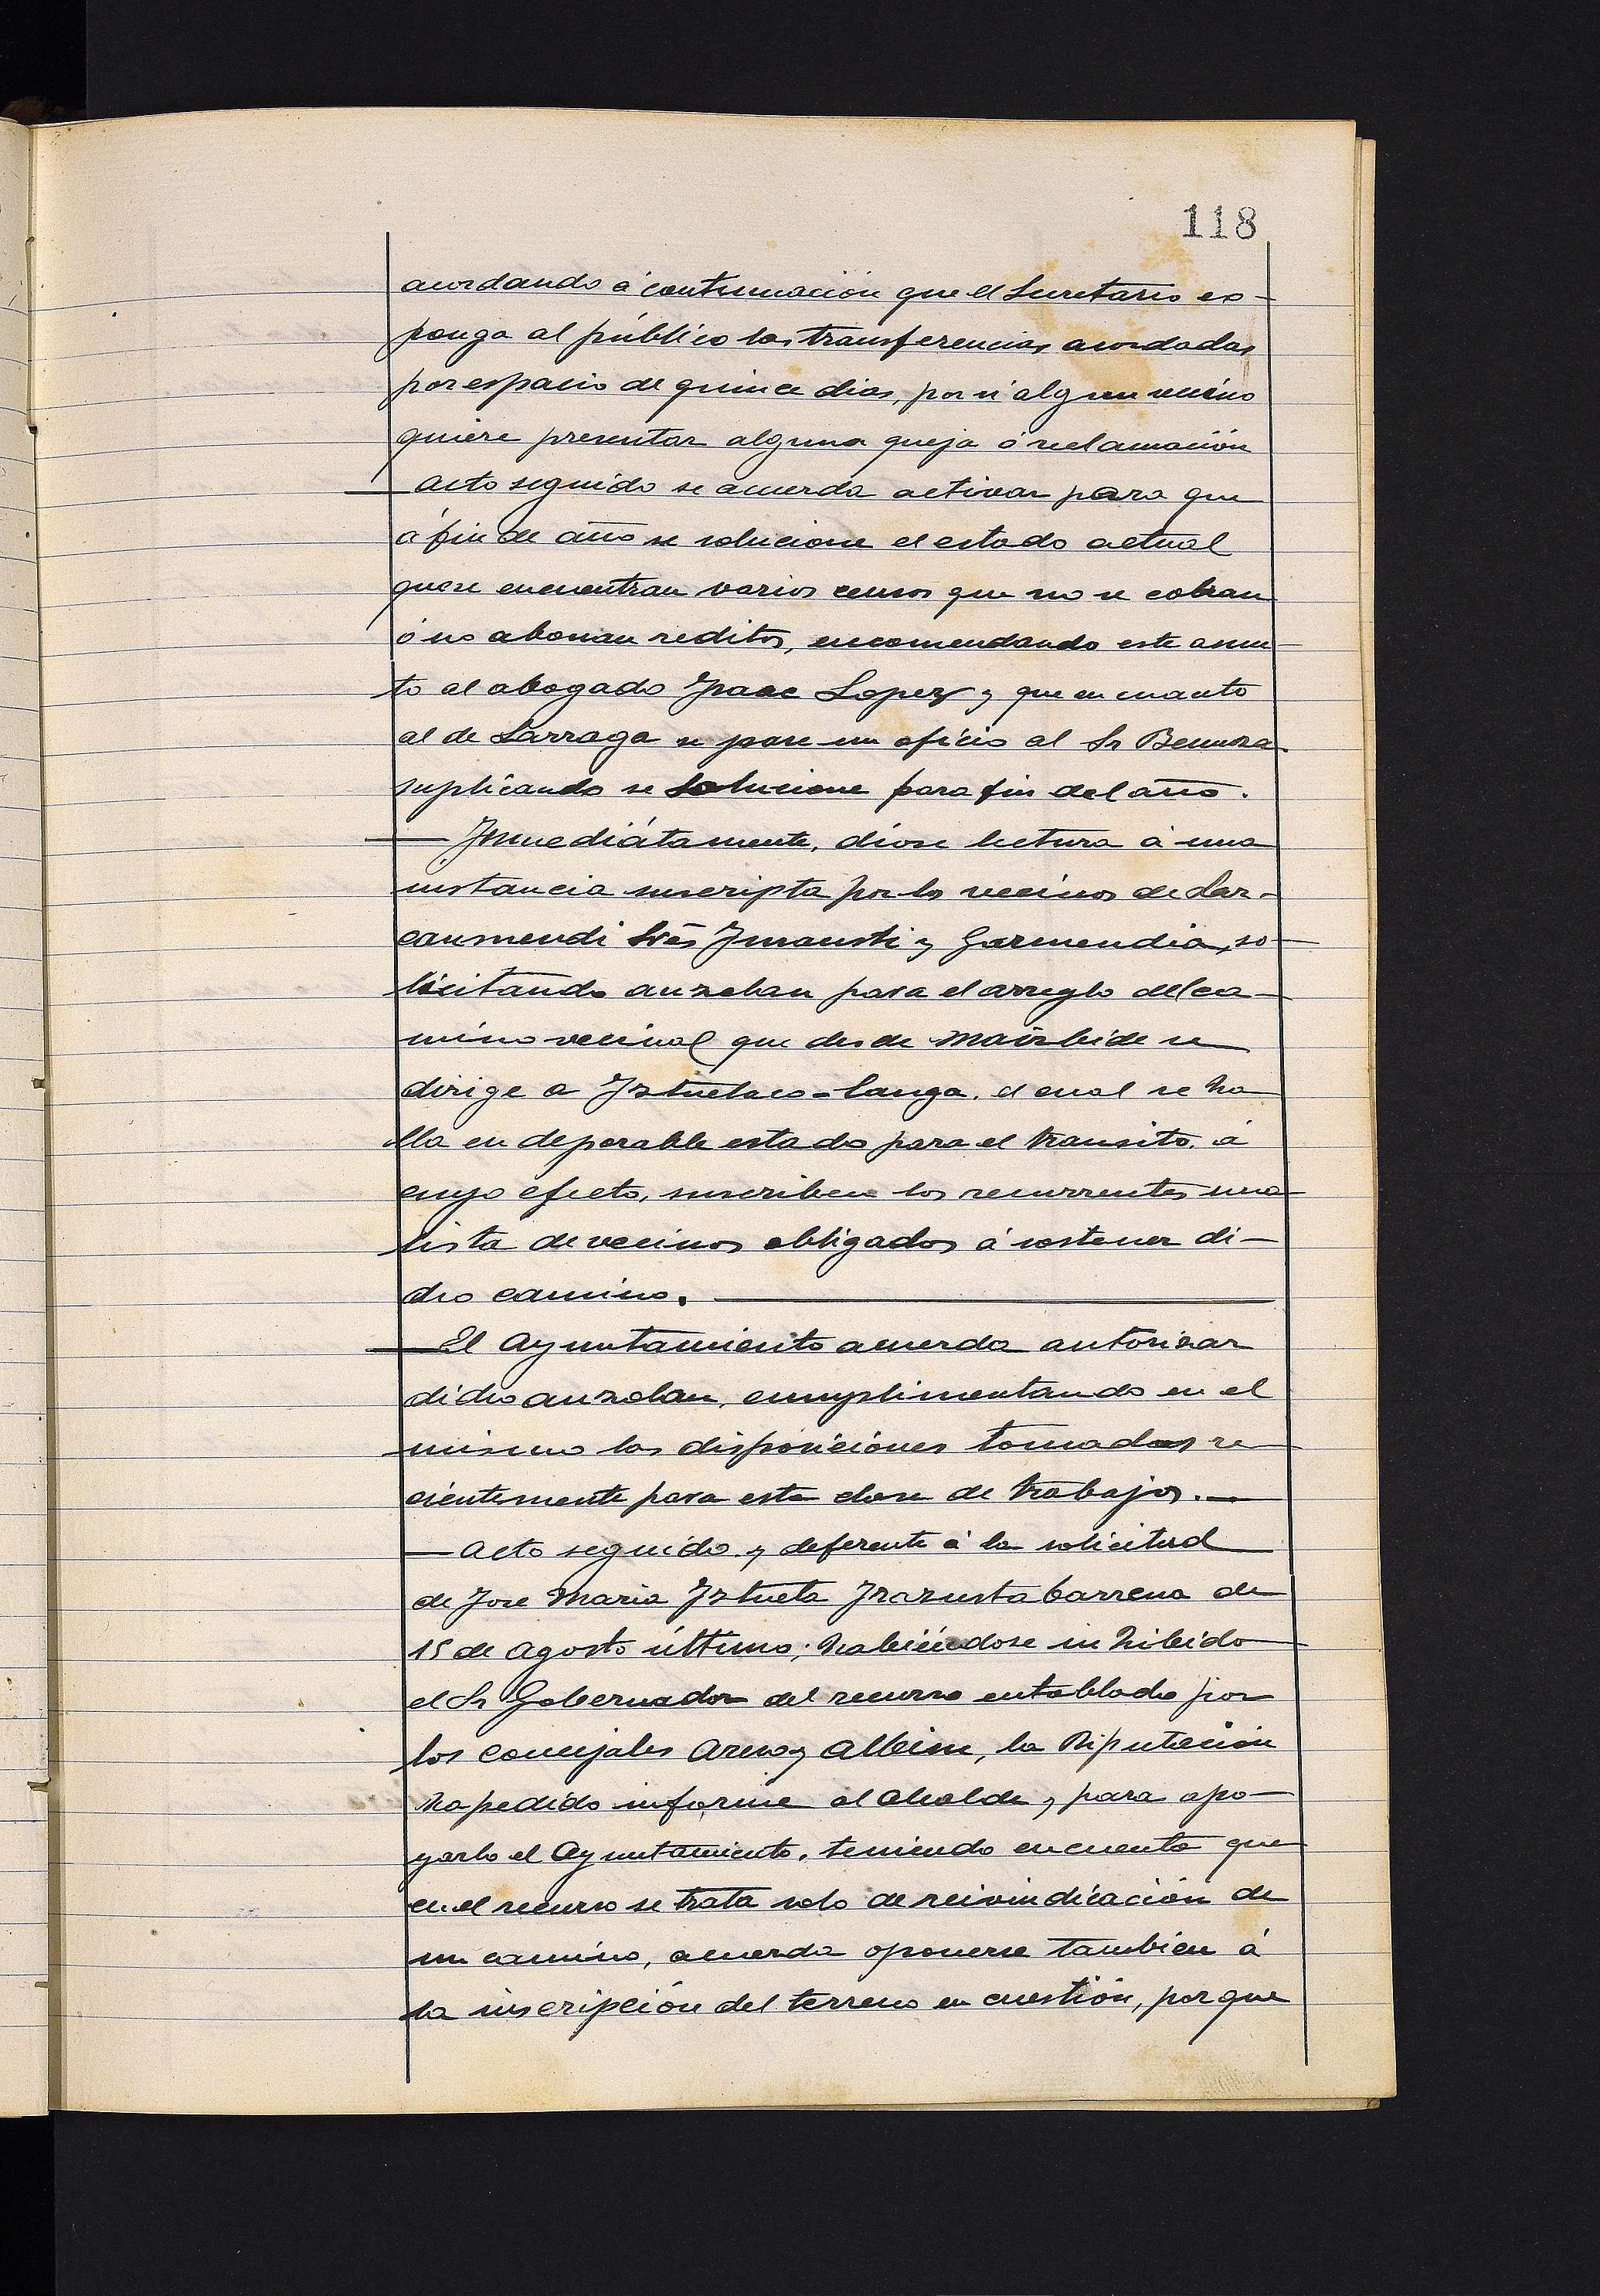 118
acordando á continuación que el Secretario ex-
ponga al público las transferencias acordadas
por espacio de quince dias, por si algun vecino
quiere presentar alguna queja ó reclamación
— Acto seguido se acuerda activar para que
á fin de año se solucione el estado actual
que se encuentran varios censos que no se cobran
ó no abonan reditos, encomendando este asun-
to al abogado Isaac Lopez y que en cuanto
al de Larraga se pase un oficio al Sr
suplicando se solucione para fin del año.
— Inmediátamente, dióse lectura á una
instancia suscripta por los vecinos de Laz-
causmendi Srēs Imausti y Garmendia, so-
licitando auzolan para el arreglo del ca-
mino vecinal que desde Mairbide se
dirige a Iztuetaco-langa, el cual se ha
lla en deporable estado para el transito, á
cuyo efecto, suscriben los recurrentes una
lista de vecinos obligados á sostener di-
cho camino. —
— El Ayuntamiento acuerda autorizar
dicho auzolan, cumplimentando en el
mismo las disposiciones tomadas re
cientemente para esta clase de trabajos. —
— Acto seguido y deferente á la solicitud
de Jose Maria Iztueta Irazustabarrena de
15 de Agosto último; habiéndose inhibido
el Sr Gobernador del recurso entablado por
los concejales Areso y Albisu, la Diputación
ha pedido informe al Alcalde y para apo-
yarlo el Ayuntamiento, teniendo en cuenta que
en el recurso se trata solo de reivindicación de
un camino, acuerda oponerse tambien á
la inscripción del terreno en cuestión, porque